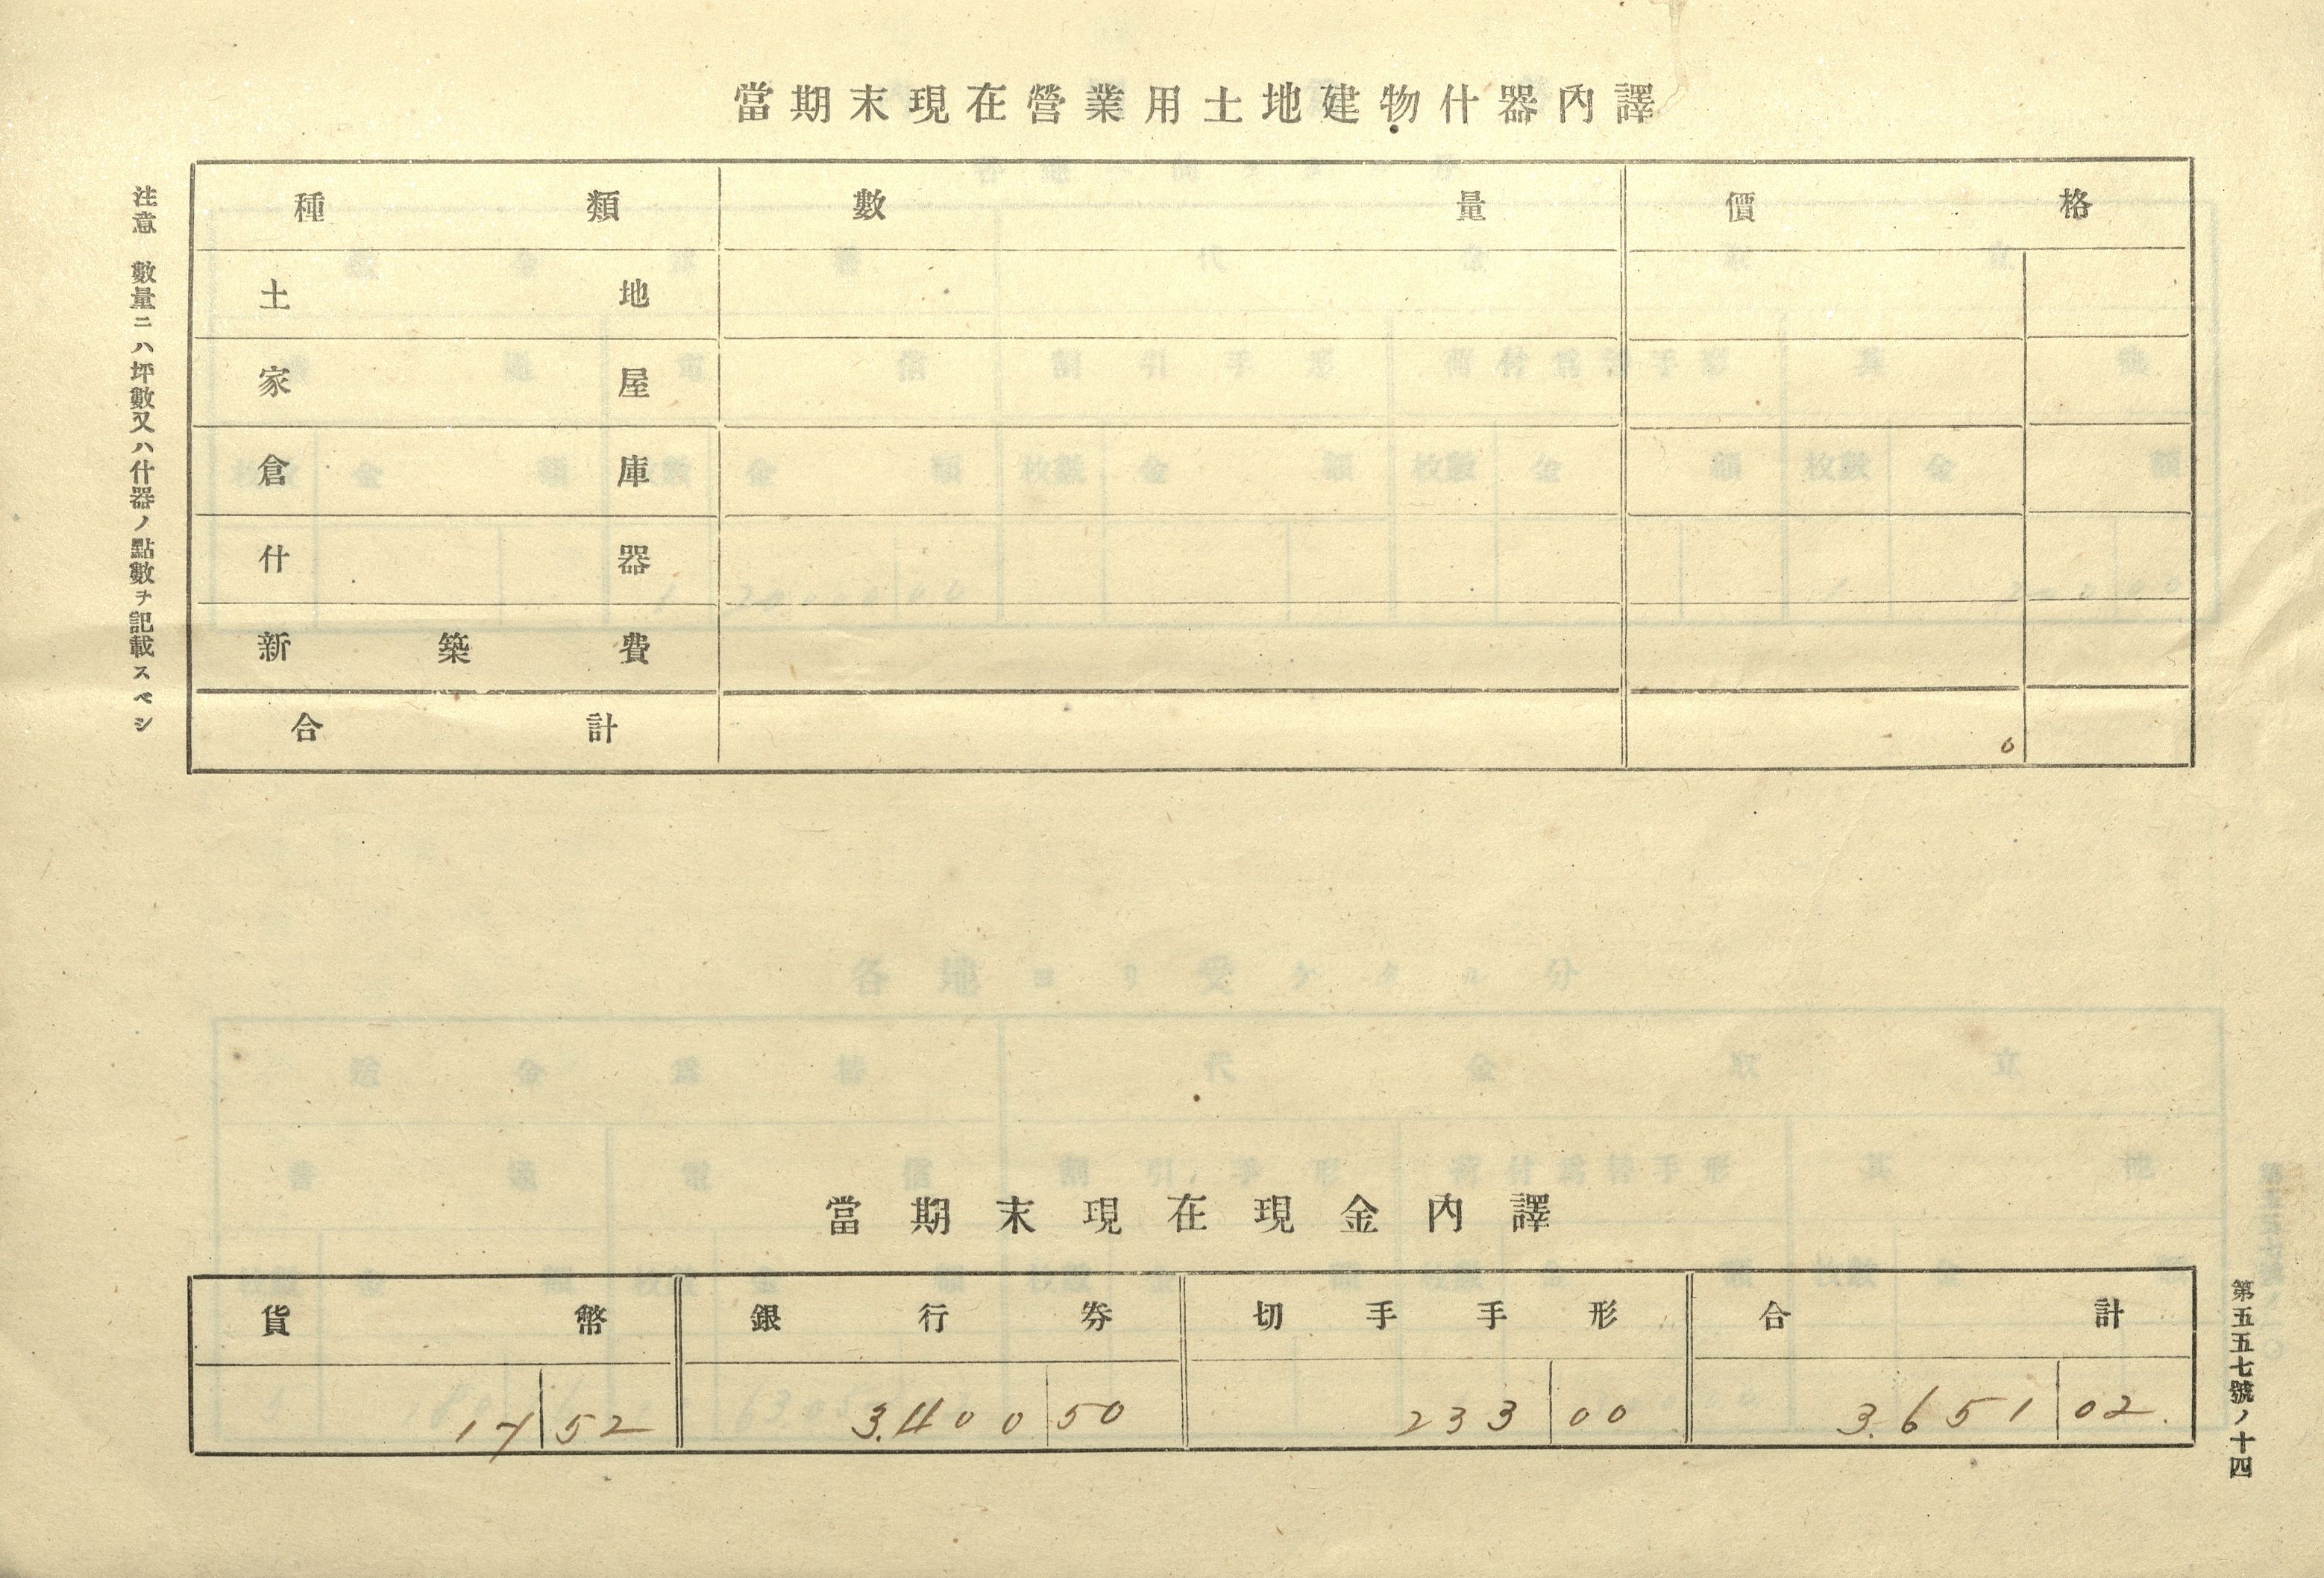 當期末現在營業用土地建物什器內譯
種類 數量 價格
土地
家屋
倉庫
什器
新築費
合計 0
注意 數量ニハ坪數又ハ什器ノ點數ヲ記載スベシ
當期末現在現金內譯
貨幣 銀行券 切手手形 合計
17 52 3,400 50 233 00 3,651 02.
第五五七號ノ十四